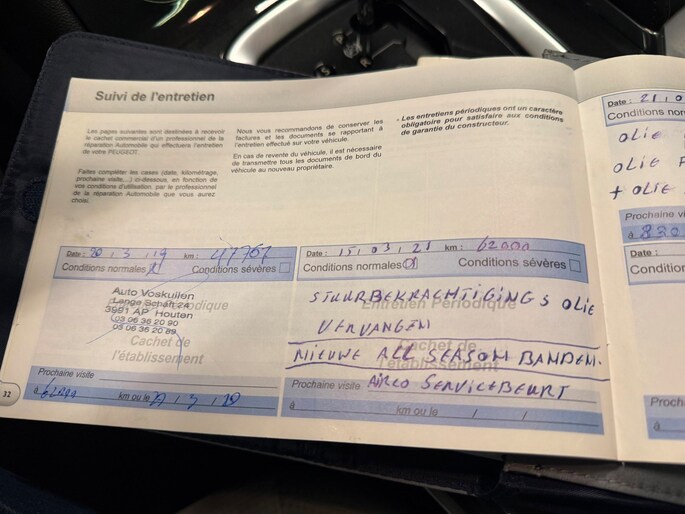 Suivi de l'entretien
Les pages suivantes sont destinées à recevoir
le cachet commercial d'un professionnel de la
réparation Automobile qui effectuera l'entretien
de votre PEUGEOT.
Faites compléter les cases (date, kilométrage,
prochaine visite,...) ci-dessous, en fonction de
vos conditions d'utilisation, par le professionnel
de la réparation Automobile que vous aurez
choisi.
Nous vous recommandons de conserver les
factures et les documents se rapportant à
l'entretien effectué sur votre véhicule.
En cas de revente du véhicule, il est nécessaire
de transmettre tous les documents de bord du
véhicule au nouveau propriétaire.
- Les entretiens périodiques ont un caractère
obligatoire pour satisfaire aux conditions
de garantie du constructeur.
Date : 20 . 3 . 19 km :
Conditions normales Conditions sévères
Auto Voskuilen
3991 AP Houten
03 06 36 20 90
03 06 35 20 89
Cachet de
l'établissement
Prochaine visite
à km ou le
32
Date : 15 . 03 . 21 km : 62000
Conditions normales Conditions sévères
Entretien Périodique
STUURBEKRACHTIGINGS OLIE
VERVANGEN
Cachet de
NIEUWE ALL SEASON BANDEN.
l'établissement
Prochaine visite AIRCO SERVICEBEURT
à km ou le / /
Date : 21 . 0
Conditions nor
OLIE
OLIE F
+ OLIE
Prochaine vi
à 830
Date :
Condition
Proch
à